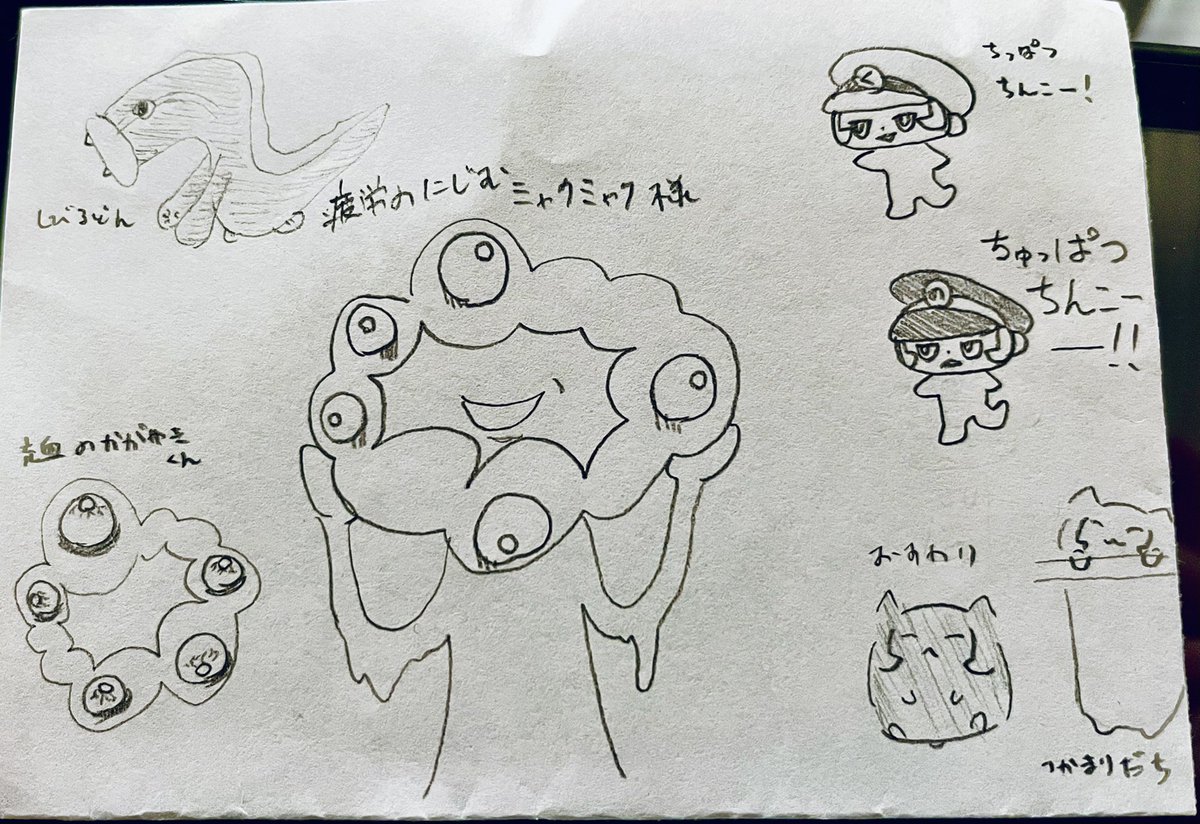 ちっぱつ
ちんこー!
しびるどん
疲労のにじむミャクミャク様
ちゅっぱつ
ちんこー
ー!!
のかがやき
くん
おすわり
つかまりだち